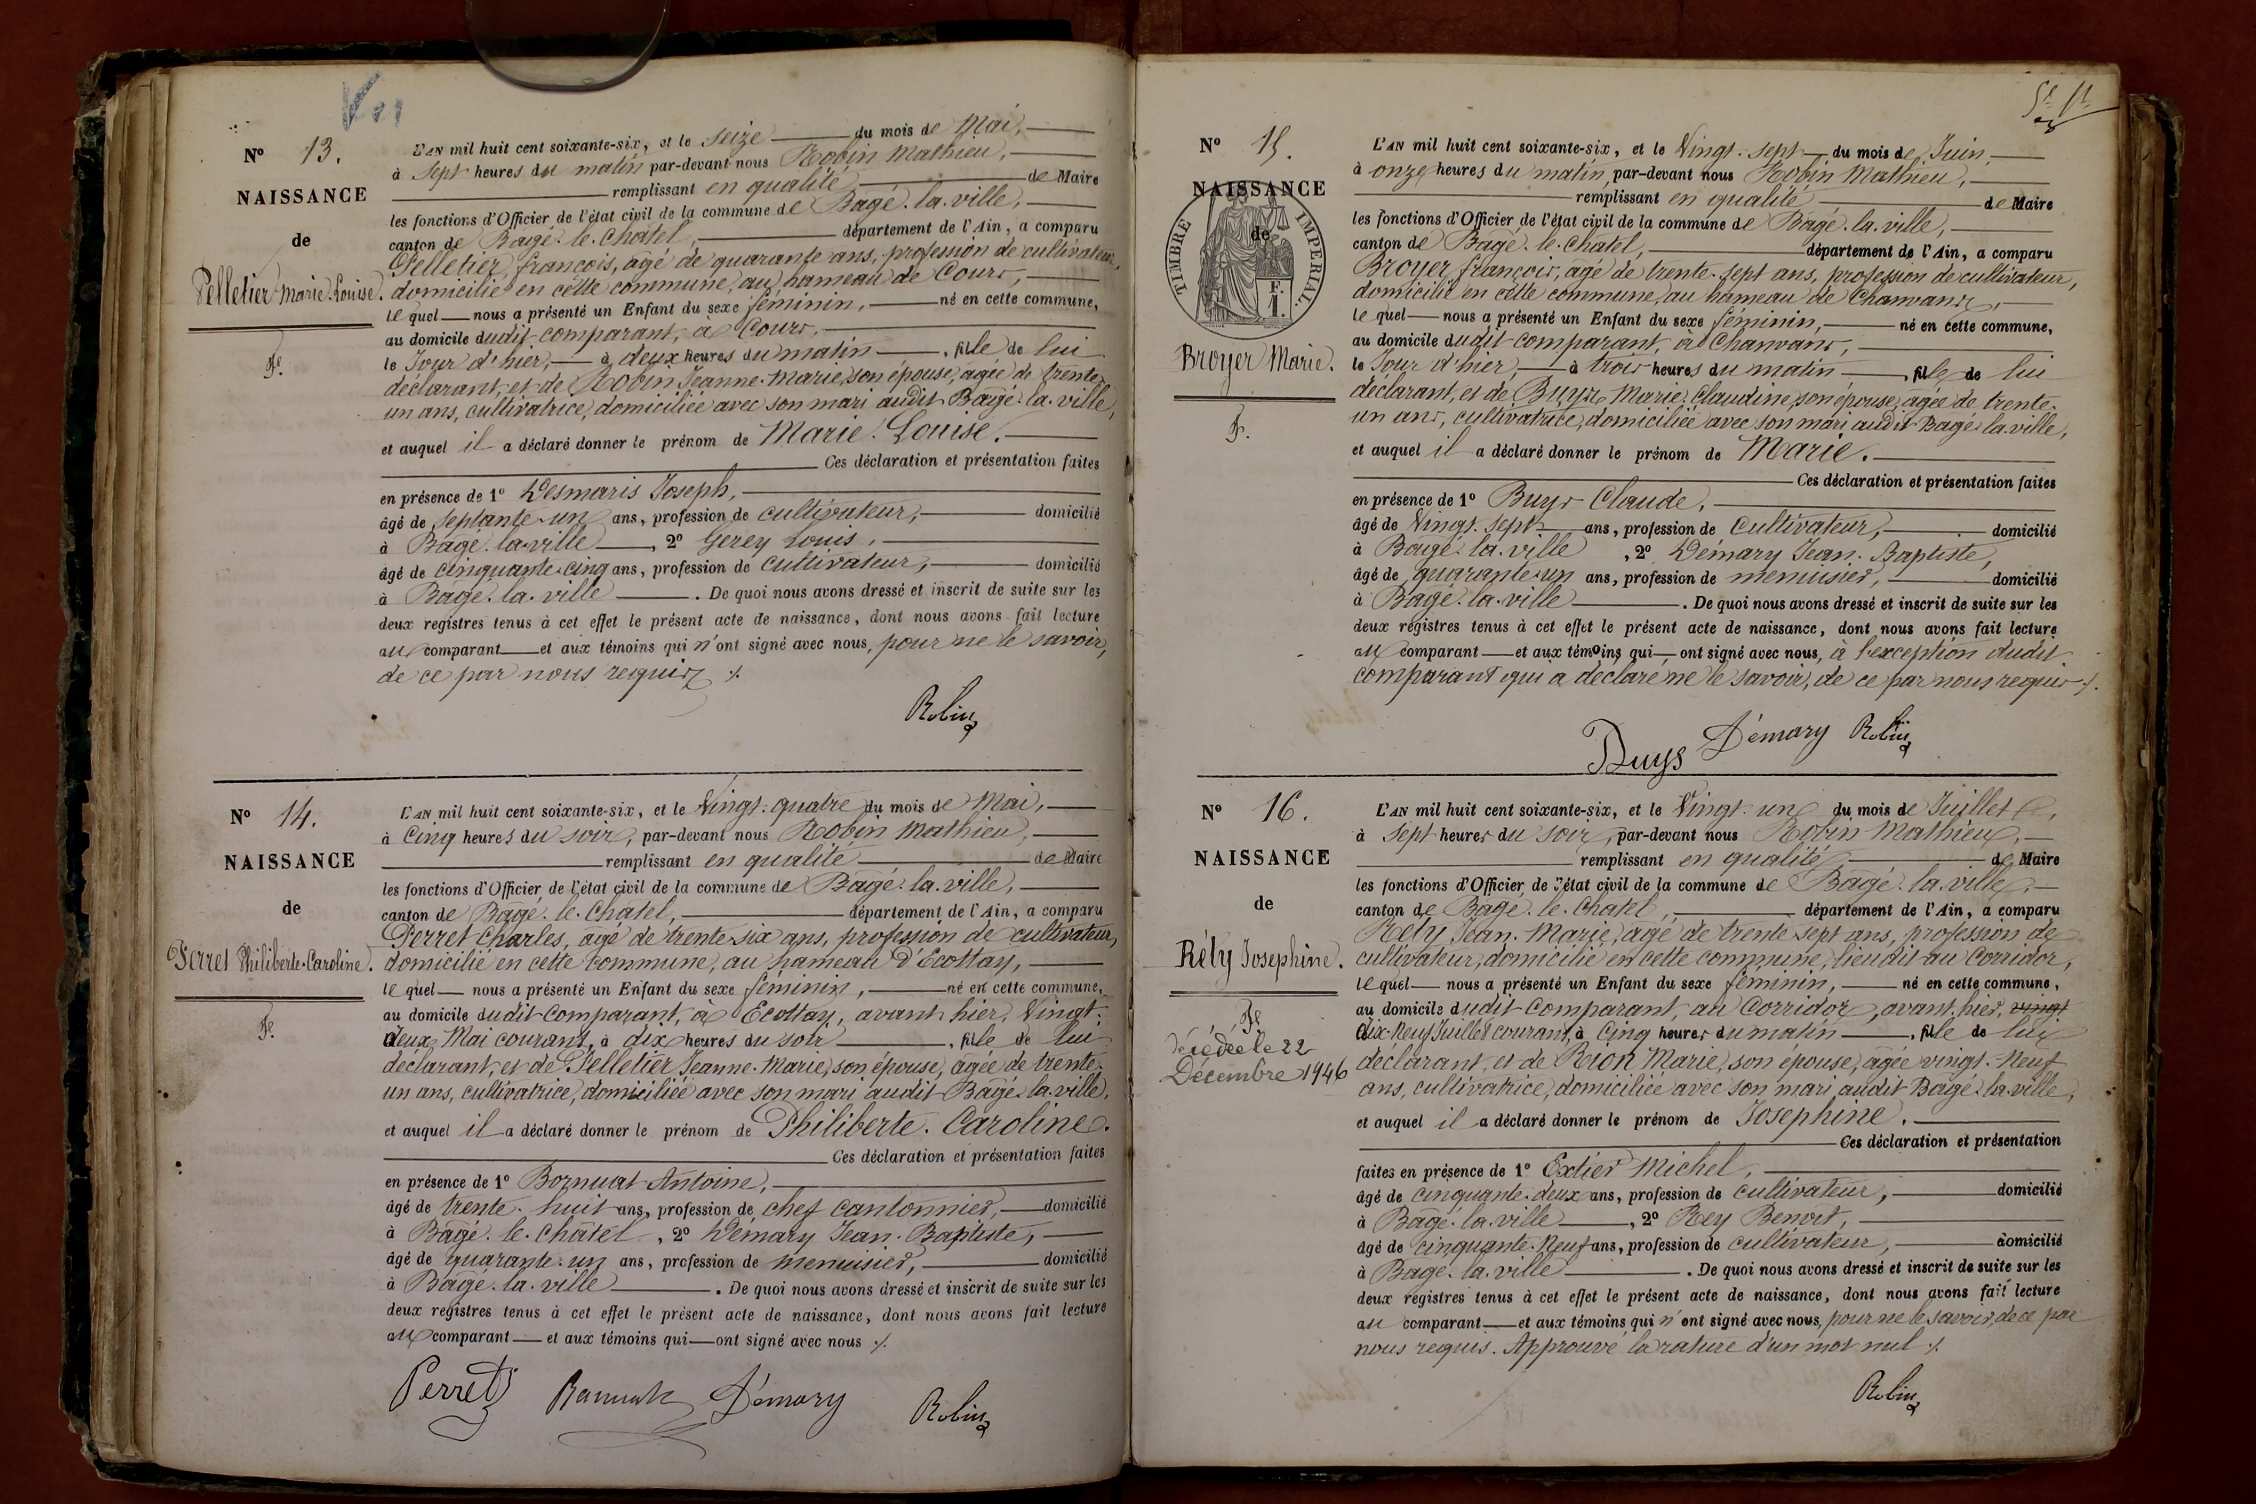 N° 13.
NAISSANCE
de
Pelletier Marie-Louise.
Fe.
L'AN mil huit cent soixante-six, et le seize du mois de Mai,
à sept heures du matin par-devant nous Robin Mathieu,
remplissant en qualité de Maire
les fonctions d'Officier de l'état civil de la commune de Bâgé-la-ville,
canton de Bâgé-le-Châtel, département de l'Ain, a comparu
Pelletier, françois, âgé de quarante ans, profession de cultivateur,
domicilié en cette commune, au hameau de Cours,
lequel nous a présenté un Enfant du sexe féminin, né en cette commune,
au domicile dudit comparant, à Cours,
le Jour d'hier, à deux heures du matin, fille de lui
déclarant, et de Robin Jeanne-Marie, son épouse, âgée de trente-
un ans, cultivatrice, domiciliée avec son mari audit Bâgé-la-ville,
et auquel il a déclaré donner le prénom de Marie-Louise.
Ces déclaration et présentation faites
en présence de 1° Desmaris Joseph,
âgé de septante-un ans, profession de cultivateur, domicilié
à Bâgé-la-ville, 2° Gerey Louis,
âgé de cinquante-cinq ans, profession de cultivateur, domicilié
à Bâgé-la-ville. De quoi nous avons dressé et inscrit de suite sur les
deux registres tenus à cet effet le présent acte de naissance, dont nous avons fait lecture
au comparant et aux témoins qui n'ont signé avec nous, pour ne le savoir,
de ce par nous requis ./.
Robin
N° 14.
NAISSANCE
de
Perret Philiberte-Caroline.
Fe.
L'AN mil huit cent soixante-six, et le Vingt-quatre du mois de Mai,
à Cinq heures du soir, par-devant nous Robin Mathieu,
remplissant en qualité de Maire
les fonctions d'Officier de l'état civil de la commune de Bâgé-la-ville,
canton de Bâgé-le-Châtel, département de l'Ain, a comparu
Perret Charles, âgé de trente-six ans, profession de cultivateur,
domicilié en cette commune, au hameau d'Ecottay,
lequel nous a présenté un Enfant du sexe féminin, né en cette commune,
au domicile dudit comparant, à Ecottay, avant-hier, Vingt-
deux Mai courant, à dix heures du soir, fille de lui
déclarant, et de Pelletier Jeanne-Marie, son épouse, âgée de trente-
un ans, cultivatrice, domiciliée avec son mari audit Bâgé-la-ville,
et auquel il a déclaré donner le prénom de Philiberte-Caroline.
Ces déclaration et présentation faites
en présence de 1° Bornuat Antoine,
âgé de trente-huit ans, profession de chef cantonnier, domicilié
à Bâgé-le-Châtel, 2° Démary Jean-Baptiste,
âgé de quarante-un ans, profession de menuisier, domicilié
à Bâgé-la-ville. De quoi nous avons dressé et inscrit de suite sur les
deux registres tenus à cet effet le présent acte de naissance, dont nous avons fait lecture
au comparant et aux témoins qui ont signé avec nous ./.
Perret Démary Robin
N° 15.
NAISSANCE
de
TIMBRE IMPERIAL.
F. 1.
Broyer Marie.
F.
L'AN mil huit cent soixante-six, et le Vingt-sept du mois de Juin,
à onze heures du matin, par-devant nous Robin Mathieu,
remplissant en qualité de Maire
les fonctions d'Officier de l'état civil de la commune de Bâgé-la-ville,
canton de Bâgé-le-Châtel, département de l'Ain, a comparu
Broyer, françois, âgé de trente-sept ans, profession de cultivateur,
domicilié en cette commune, au hameau de Chanvans,
lequel nous a présenté un Enfant du sexe féminin, né en cette commune,
au domicile dudit comparant, à Chanvans,
le Jour d'hier, à trois heures du matin, fille de lui
déclarant, et de Buys Marie-Claudine, son épouse, âgée de trente-
un ans, cultivatrice, domiciliée avec son mari audit Bâgé-la-ville,
et auquel il a déclaré donner le prénom de Marie.
Ces déclaration et présentation faites
en présence de 1° Buys Claude,
âgé de Vingt-sept ans, profession de Cultivateur, domicilié
à Bâgé-la-ville, 2° Démary Jean-Baptiste,
âgé de quarante-un ans, profession de menuisier, domicilié
à Bâgé-la-ville. De quoi nous avons dressé et inscrit de suite sur les
deux registres tenus à cet effet le présent acte de naissance, dont nous avons fait lecture
au comparant et aux témoins qui ont signé avec nous, à l'exception dudit
comparant qui a déclaré ne le savoir, de ce par nous requis ./.
Buys Démary Robin
N° 16.
NAISSANCE
de
Rély Josephine.
Fe
décédée le 22
Décembre 1946
L'AN mil huit cent soixante-six, et le Vingt-un du mois de Juillet,
à sept heures du soir, par-devant nous Robin Mathieu,
remplissant en qualité de Maire
les fonctions d'Officier de l'état civil de la commune de Bâgé-la-ville,
canton de Bâgé-le-Châtel, département de l'Ain, a comparu
Rély Jean-Marie, âgé de trente-sept ans, profession de
cultivateur, domicilié en cette commune, lieu dit au Corridor,
lequel nous a présenté un Enfant du sexe féminin, né en cette commune,
au domicile dudit comparant, au Corridor, avant-hier, vingt
dix-neuf Juillet courant, à Cinq heures du matin, fille de lui
déclarant, et de Rion Marie, son épouse, âgée vingt-neuf
ans, cultivatrice, domiciliée avec son mari audit Bâgé-la-ville,
et auquel il a déclaré donner le prénom de Josephine.
Ces déclaration et présentation
faites en présence de 1° Extier Michel,
âgé de cinquante-deux ans, profession de cultivateur, domicilié
à Bâgé-la-ville, 2° Rey Benoit,
âgé de cinquante-neuf ans, profession de cultivateur, domicilié
à Bâgé-la-ville. De quoi nous avons dressé et inscrit de suite sur les
deux registres tenus à cet effet le présent acte de naissance, dont nous avons fait lecture
au comparant et aux témoins qui n'ont signé avec nous, pour ne le savoir, de ce par
nous requis. Approuvé la rature d'un mot nul ./.
Robin